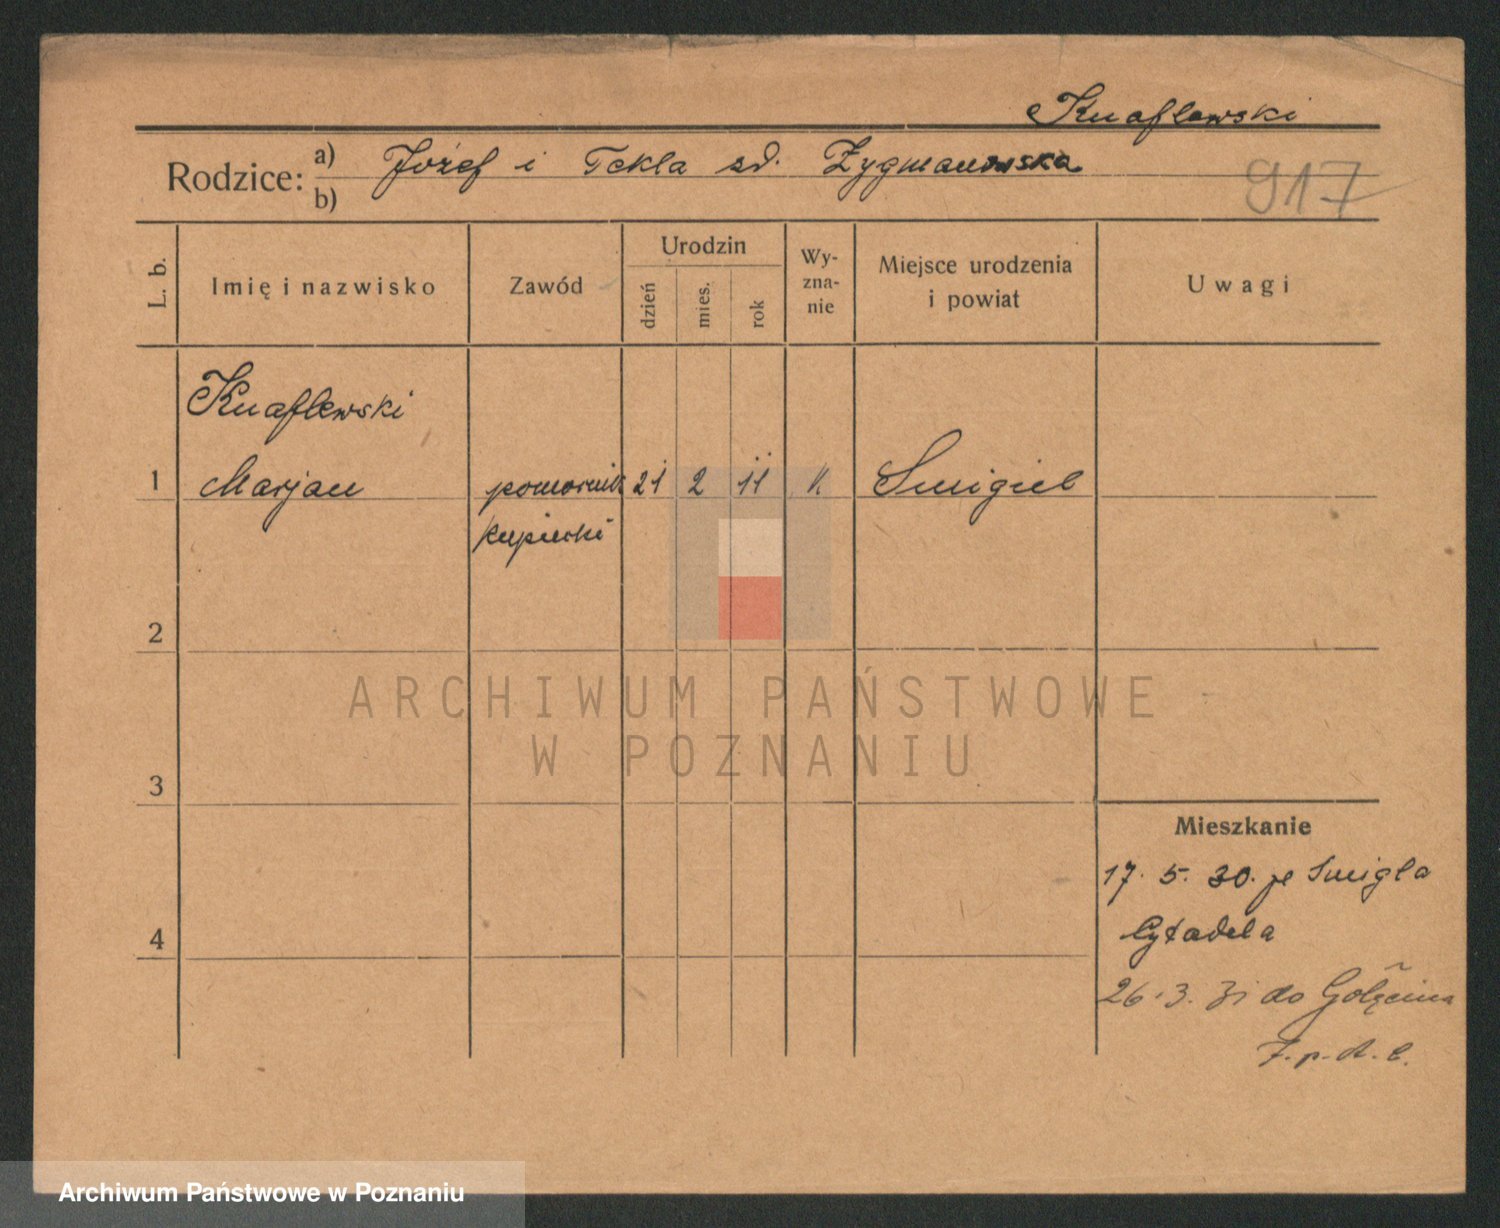 Knaflewski
Rodzice: a) Józef i Tekla zd. Zygmanowska
b)
917
L. b.
Imię i nazwisko
Zawód
Urodzin
dzień
mies.
rok
Wy-
zna-
nie
Miejsce urodzenia
i powiat
Uwagi
Knaflewski
1 Marjan pomocnik 21 2 11 k Smigiel
kupiecki
2
ARCHIWUM PAŃSTWOWE
W POZNANIU
3
Mieszkanie
17. 5. 30. ze Smigla
Cytadela
4
26. 3. 31 do Golęcina
7. p. a. c.
Archiwum Państwowe w Poznaniu